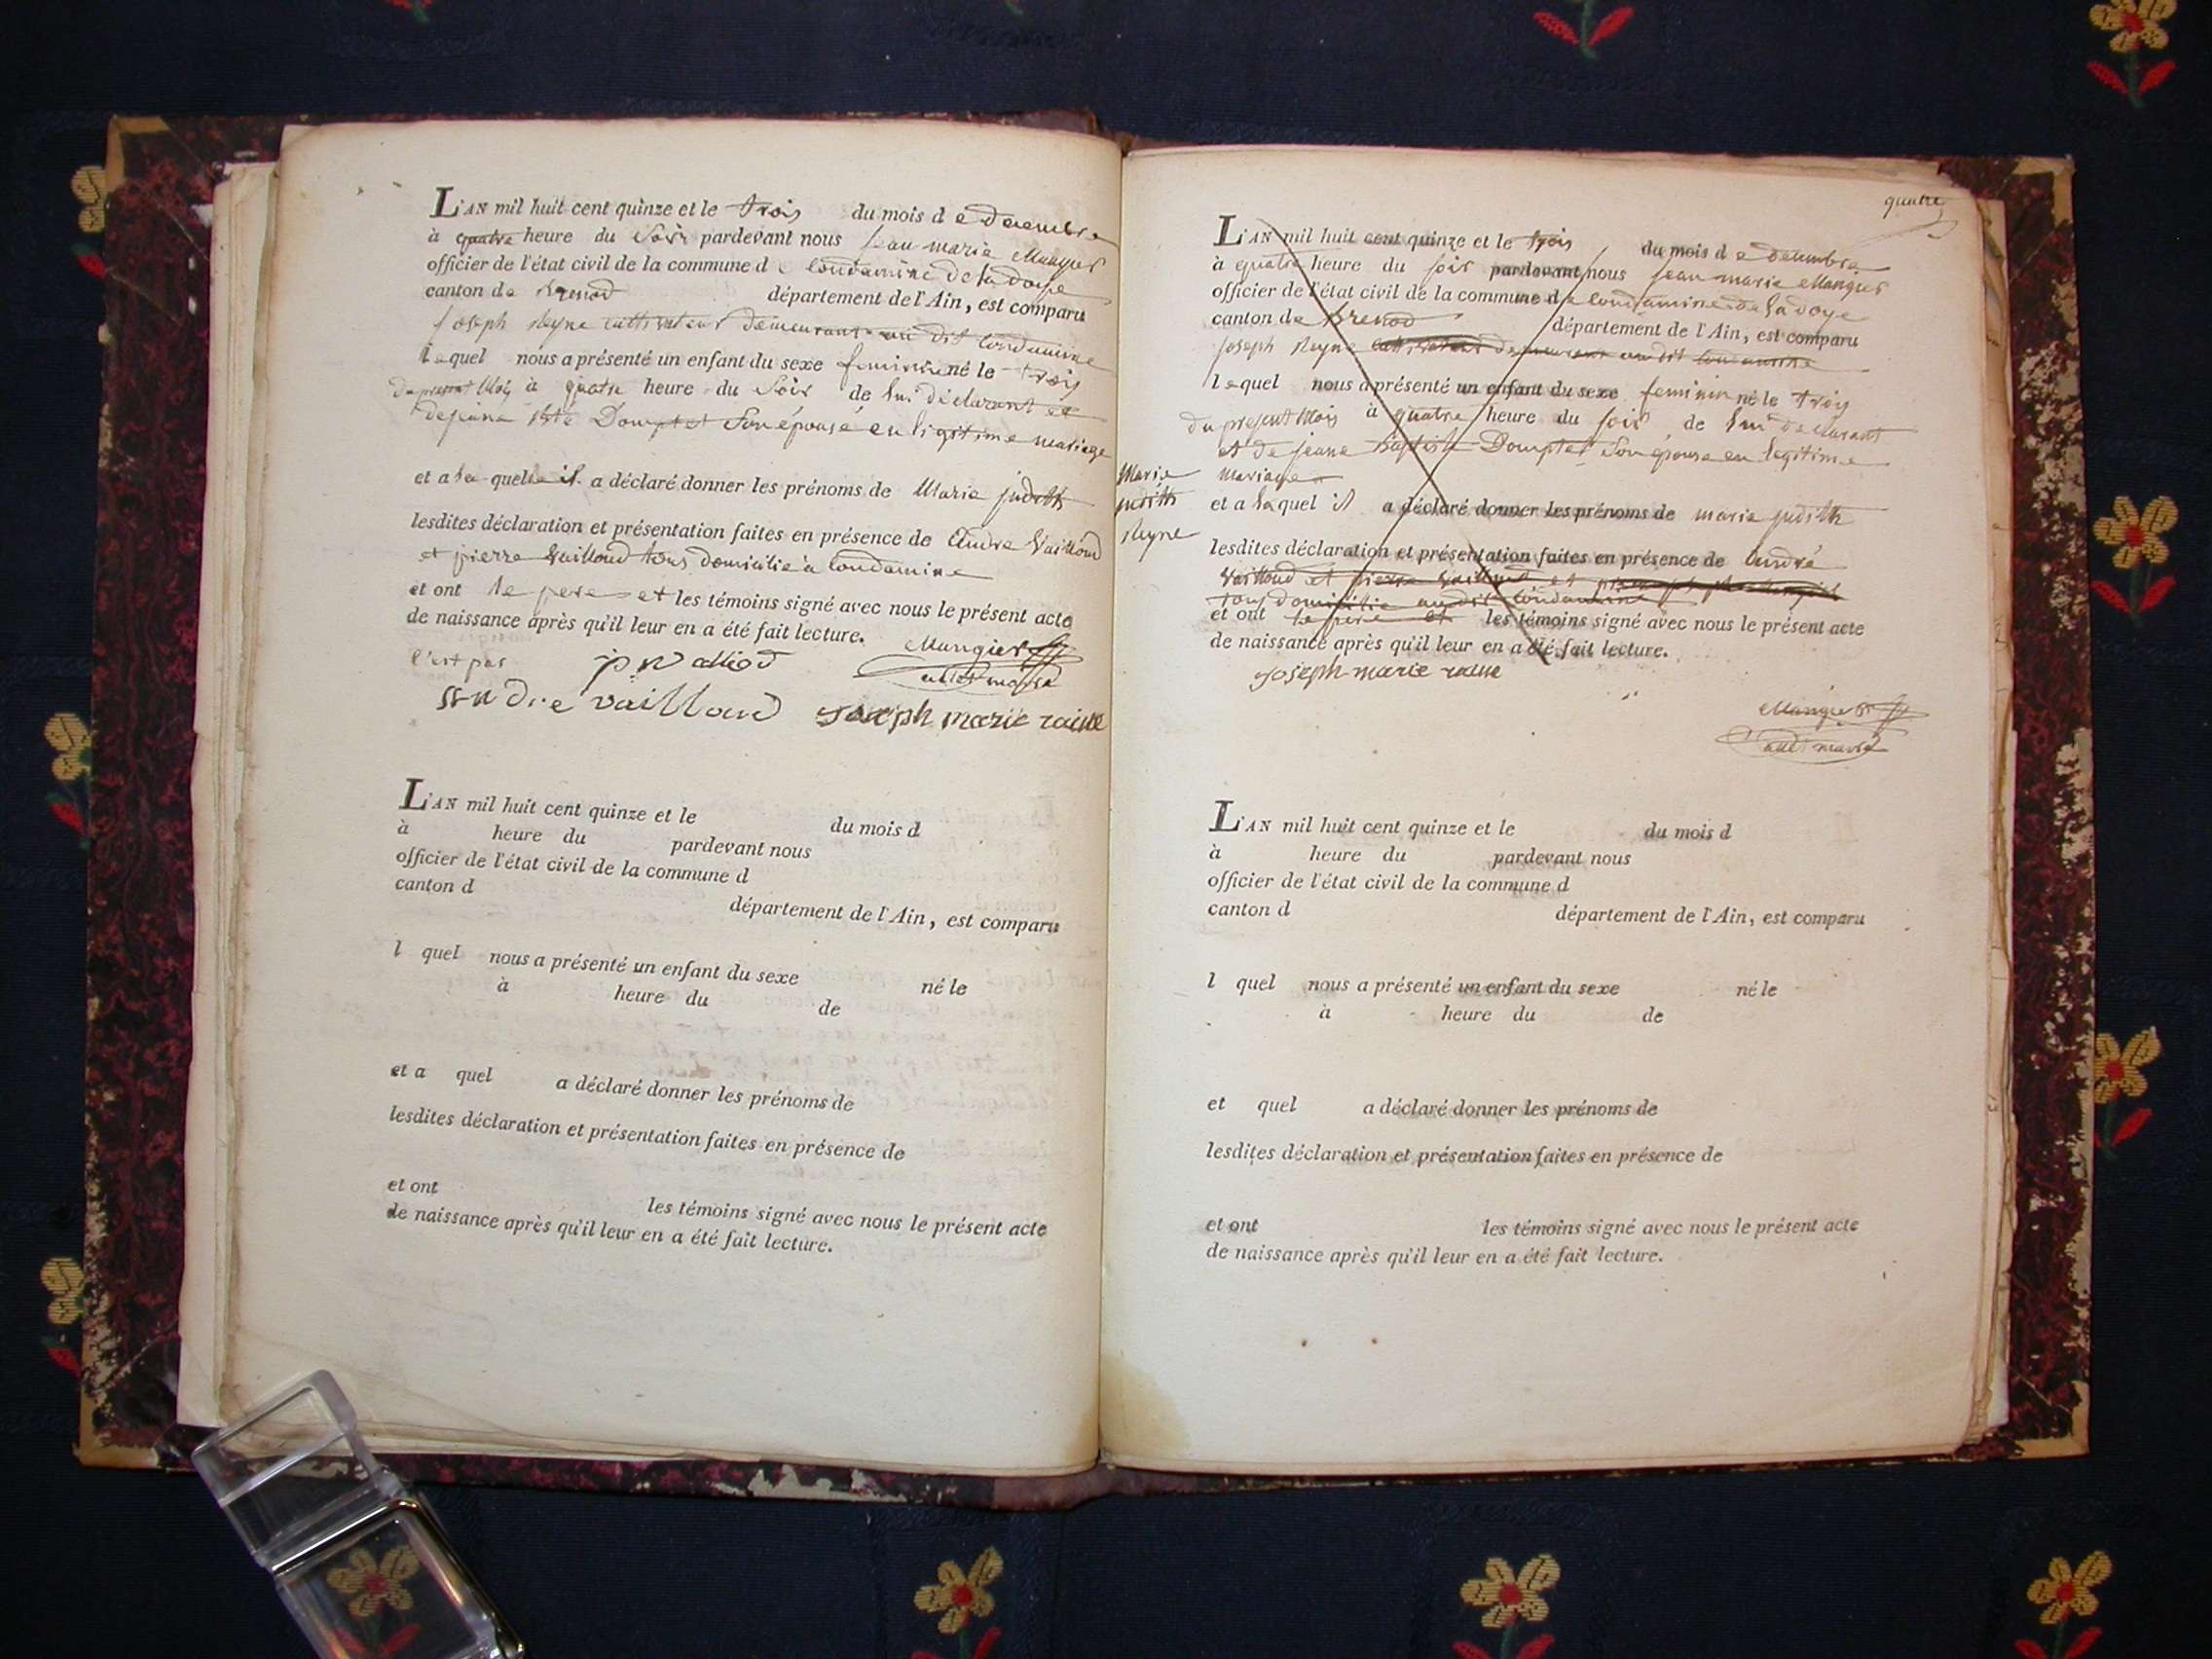 L'AN mil huit cent quinze et le trois du mois de decembre
à quatre heure du Soir pardevant nous jean marie Mangier
officier de l'état civil de la commune de Condamine de la doye
canton de Brenod département de l'Ain, est comparu
joseph Reyne cultivateur demeurant au dit Condamine
lequel nous a présenté un enfant du sexe feminin né le trois
du présent Mois à quatre heure du Soir de lui déclarant et
de jeane Bte Domptet Son épouse en légitime mariage
et a la quelle il a déclaré donner les prénoms de Marie judith
lesdites déclaration et présentation faites en présence de André Vailloud
et pierre Vailloud tous domicilié à Condamine
et ont le pere et les témoins signé avec nous le présent acte
de naissance après qu'il leur en a été fait lecture.
Mangier
andre vailloud joseph marie raine
L'AN mil huit cent quinze et le du mois d
à heure du pardevant nous
officier de l'état civil de la commune d
canton d département de l'Ain, est comparu
l quel nous a présenté un enfant du sexe né le
à heure du de
et a quel a déclaré donner les prénoms de
lesdites déclaration et présentation faites en présence de
et ont les témoins signé avec nous le présent acte
de naissance après qu'il leur en a été fait lecture.
quatre
L'AN mil huit cent quinze et le trois du mois de decembre
à quatre heure du soir pardevant nous jean marie Mangier
officier de l'état civil de la commune de Condamine de la doye
canton de Brenod département de l'Ain, est comparu
joseph Reyne cultivateur demeurant au dit Condamine
lequel nous a présenté un enfant du sexe feminin né le trois
du présent Mois à quatre heure du soir de lui déclarant
et de jeane Baptiste Domptet Son épouse en légitime
mariage
Marie
judith
Reyne
et a la quel il a déclaré donner les prénoms de marie judith
lesdites déclaration et présentation faites en présence de André
Vailloud et pierre Vailloud et
tous domicilié au dit Condamine
et ont le père et les témoins signé avec nous le présent acte
de naissance après qu'il leur en a été fait lecture.
joseph marie raine
Mangier
L'AN mil huit cent quinze et le du mois d
à heure du pardevant nous
officier de l'état civil de la commune d
canton d département de l'Ain, est comparu
l quel nous a présenté un enfant du sexe né le
à heure du de
et quel a déclaré donner les prénoms de
lesdites déclaration et présentation faites en présence de
et ont les témoins signé avec nous le présent acte
de naissance après qu'il leur en a été fait lecture.